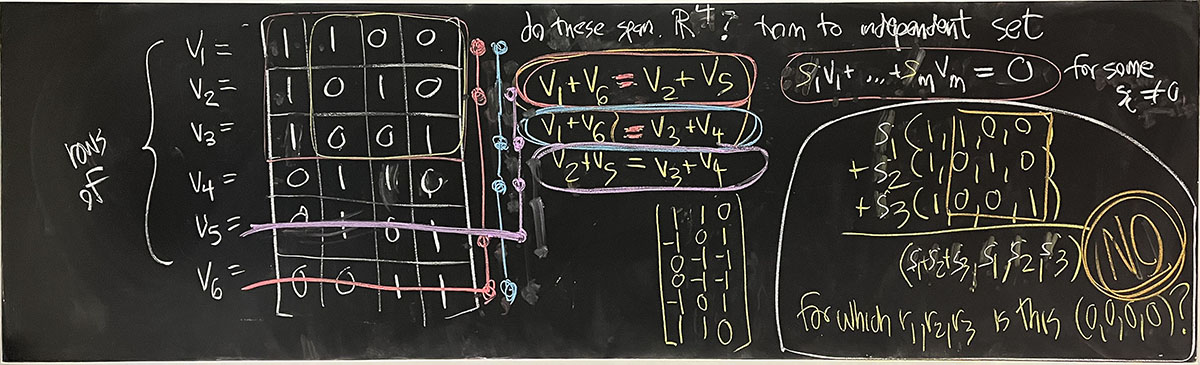 rows
of
V1 = 1 1 0 0
V2 = 1 0 1 0
V3 = 1 0 0 1
V4 = 0 1 1 0
V5 = 0 1 0 1
V6 = 0 0 1 1
do these span R^4? trim to independent set
V1 + V6 = V2 + V5
V1 + V6 = V3 + V4
V2 + V5 = V3 + V4
1 1 0
-1 0 1
0 -1 -1
0 -1 -1
-1 0 1
1 1 0
S1V1 + ... + SmVm = 0 for some
si ≠ 0
S1 (1, 1, 0, 0)
+ S2 (1, 0, 1, 0)
+ S3 (1, 0, 0, 1)
(S1+S2+S3, S1, S2, S3)
NO
for which r1, r2, r3 is this (0,0,0,0)?